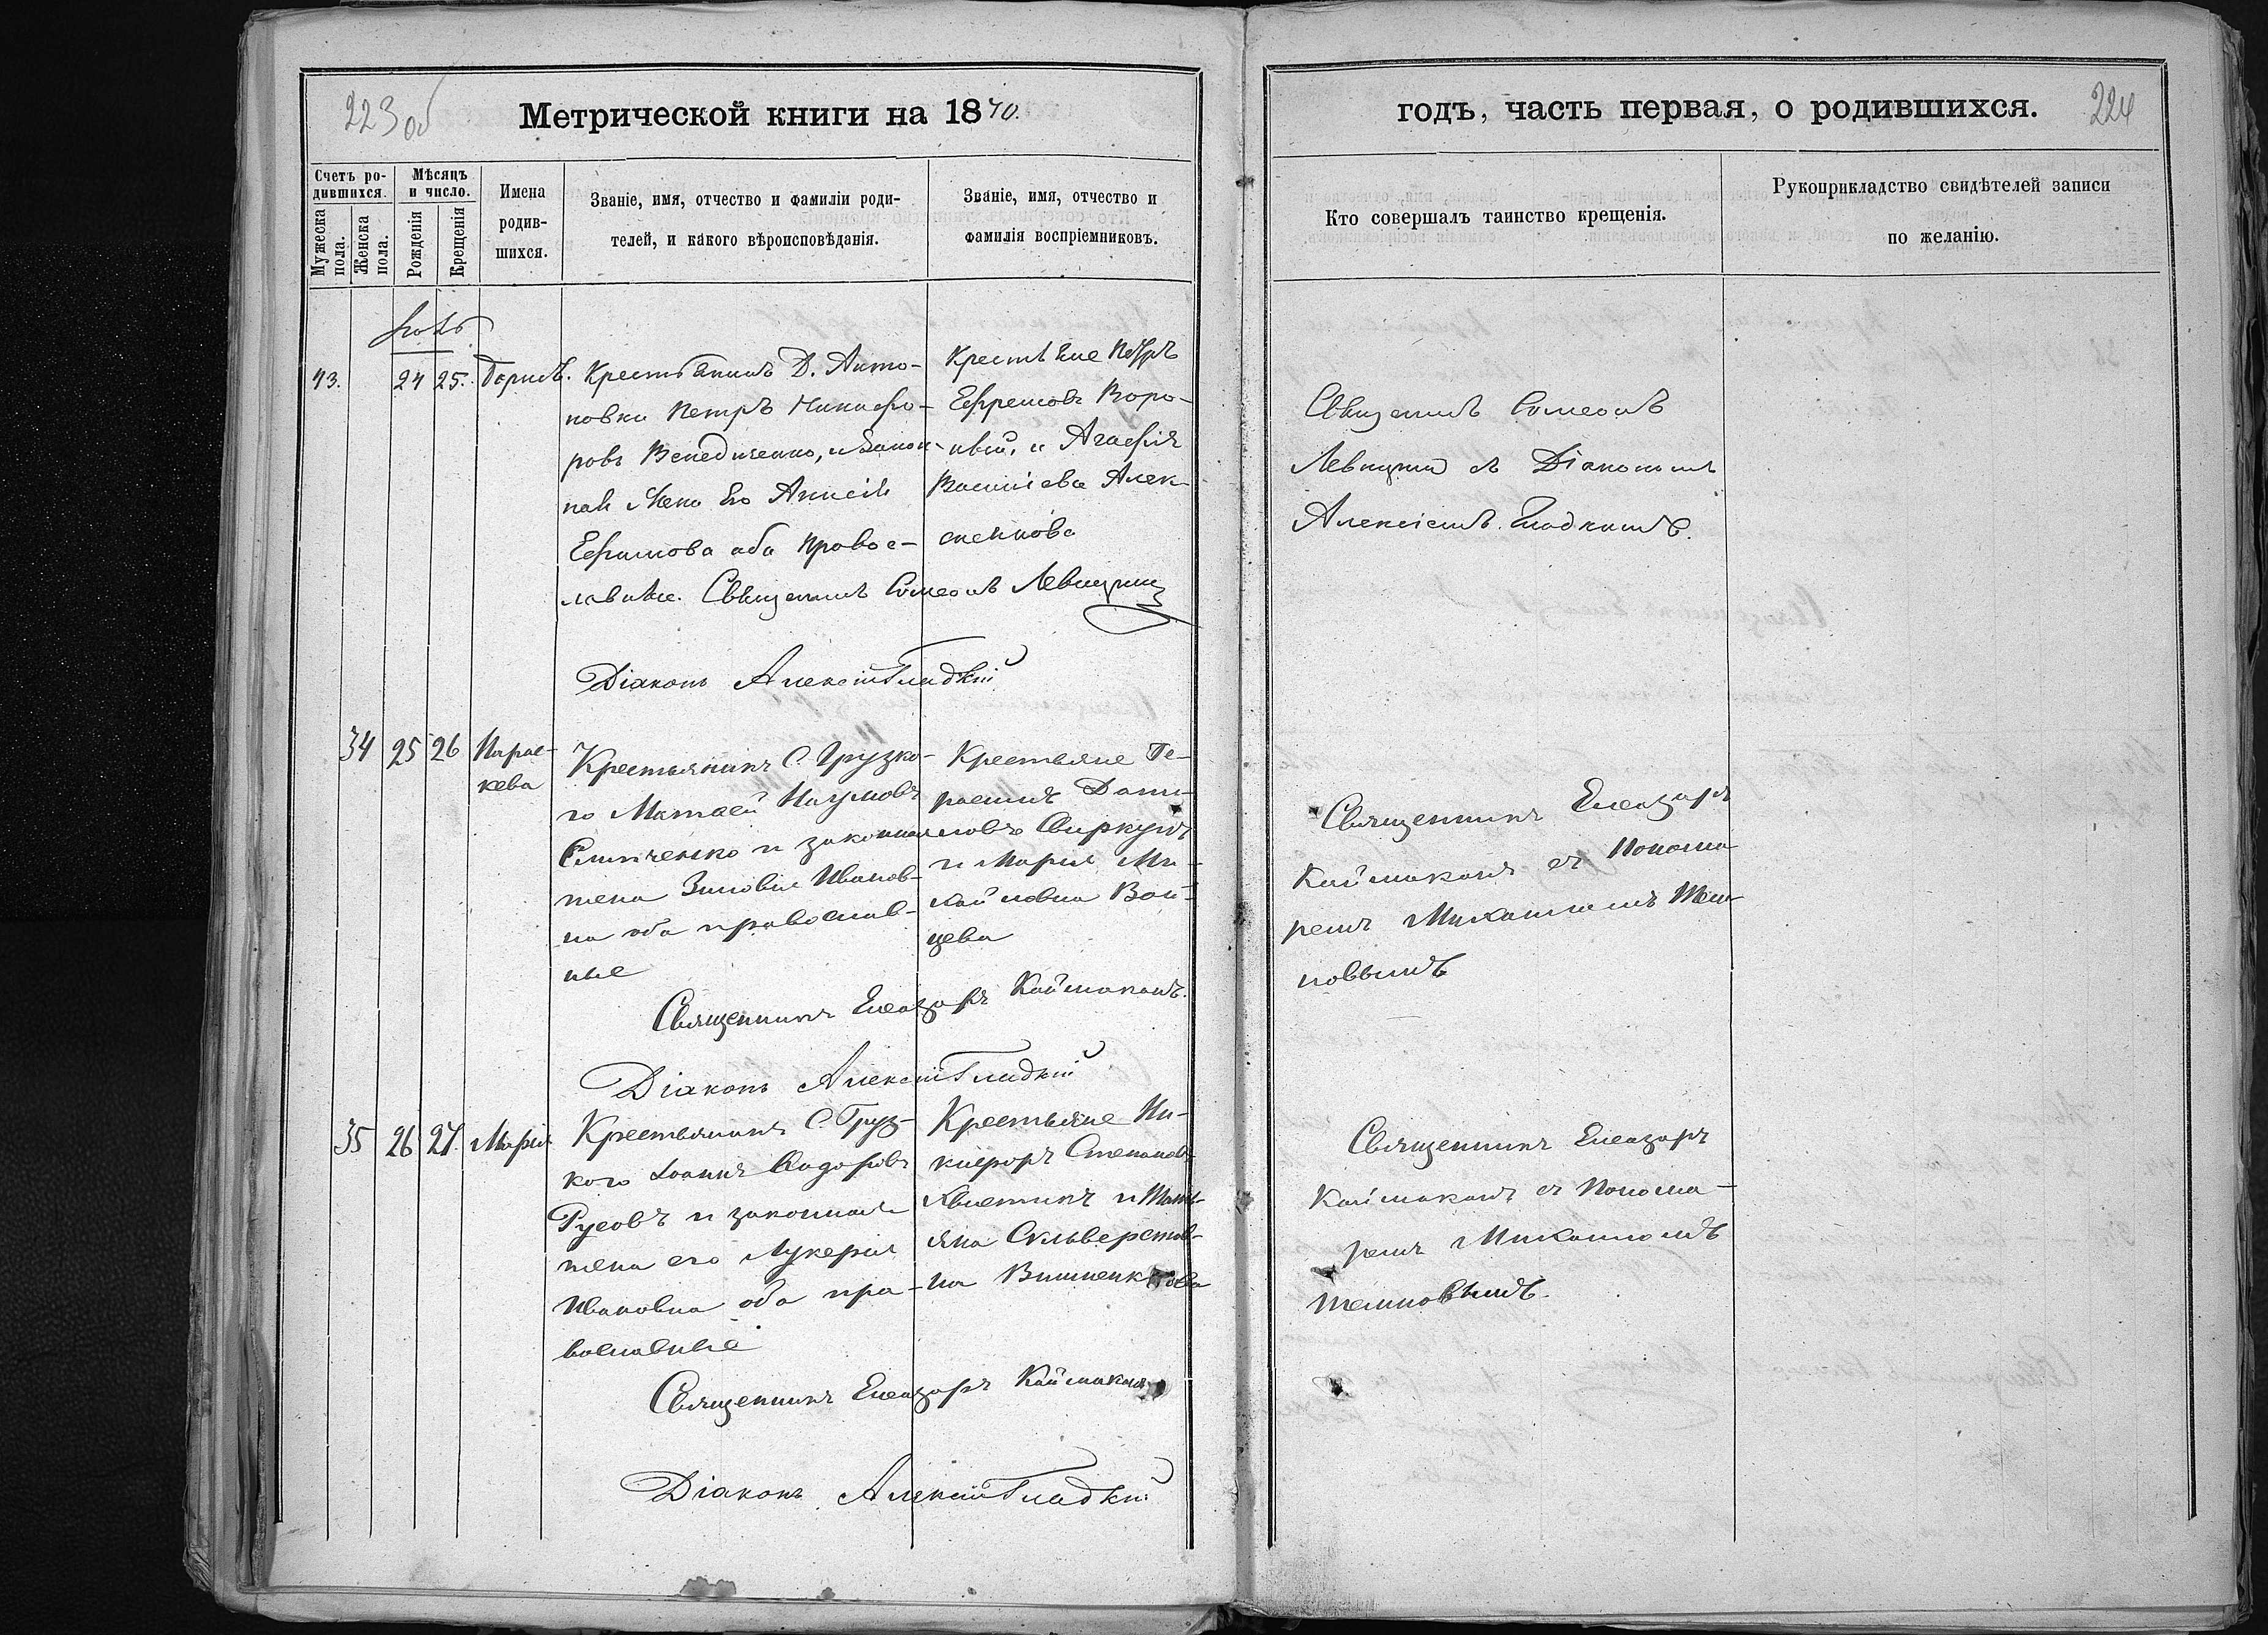 223 об
Метрической книги на 1870.
Счетъ ро-
дившихся.
Мужеска пола.
Женска пола.
Мѣсяцъ
и число.
Рожденія
Крещенія
Имена
родив-
шихся.
Званіе, имя, отчество и фамиліи роди-
телей, и какого вѣроисповѣданія.
Званіе, имя, отчество и
фамилія воспріемниковъ.
43. 24 25. Борисъ.
Крестьянинъ Д. Анто-
новки Петръ Никифо-
ровъ Венедиченко, и закон-
ная жена Его
Ефимова оба право с-
лавные. Священникъ Симеонъ Левицкий
Діаконъ Алексій Гладкій
Крестьяне Петръ
Ефремовъ Воро-
ной, и Агафія
Василіева Алек-
сеенкова
34 25 26 Парас-
кева
Крестьянинъ С. Грузко-
го Матвей Наумовъ
и законная
жена Зиновия Иванов-
на оба православ-
ные
Священникъ Елеазаръ Каймаканъ.
Діаконъ Алексій Гладкій
Крестьяне Ге-
расимъ Дани-
ловъ Свиркунъ
и Мария Ми-
хайловна Вой-
цева
35 26 27. Марія
Крестьянинъ С. Груз-
кого Іоаннъ Сидоровъ
Русовъ и законная
жена его Лукерия
Ивановна оба пра-
вославные
Священникъ Елеазаръ Каймаканъ
Діаконъ Алексій Гладкій
Крестьяне Ни-
кифоръ Степановъ
Квиткинъ и Тать-
яна Сильверстов-
на Вишненкова
годъ, часть первая, о родившихся.
224
Кто совершалъ таинство крещенія.
Рукоприкладство свидѣтелей записи
по желанію.
Священникъ Симеонъ
Левицкий съ Діакономъ
Алексіемъ Гладкимъ.
Священникъ Елеазаръ
Каймаканъ съ Понома-
ремъ Михаиломъ Тем-
новымъ
Священникъ Елеазаръ
Каймаканъ съ Понома-
ремъ Михаиломъ
Темновымъ.